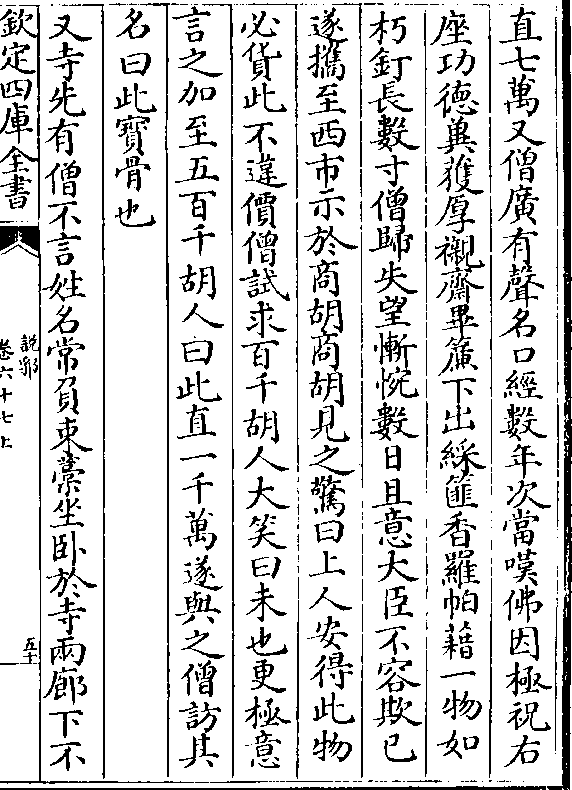 直七萬又僧廣有聲名口經數年次當嘆佛因極祝右
座功德兾獲厚襯齋畢簾下出綵篚香羅帕藉一物如
朽釘長數寸僧歸失望慚惋數日且意大臣不容欺已
遂攜至西市示於商胡商胡見之驚曰上人安得此物
必貨此不違價僧試求百千胡人大笑曰未也更極意
言之加至五百千胡人曰此直一千萬遂與之僧訪其
名曰此寳骨也
又寺先有僧不言姓名常負束藁坐卧於寺兩廊下不
欽定四庫全書
說郛
卷六十七上
五十